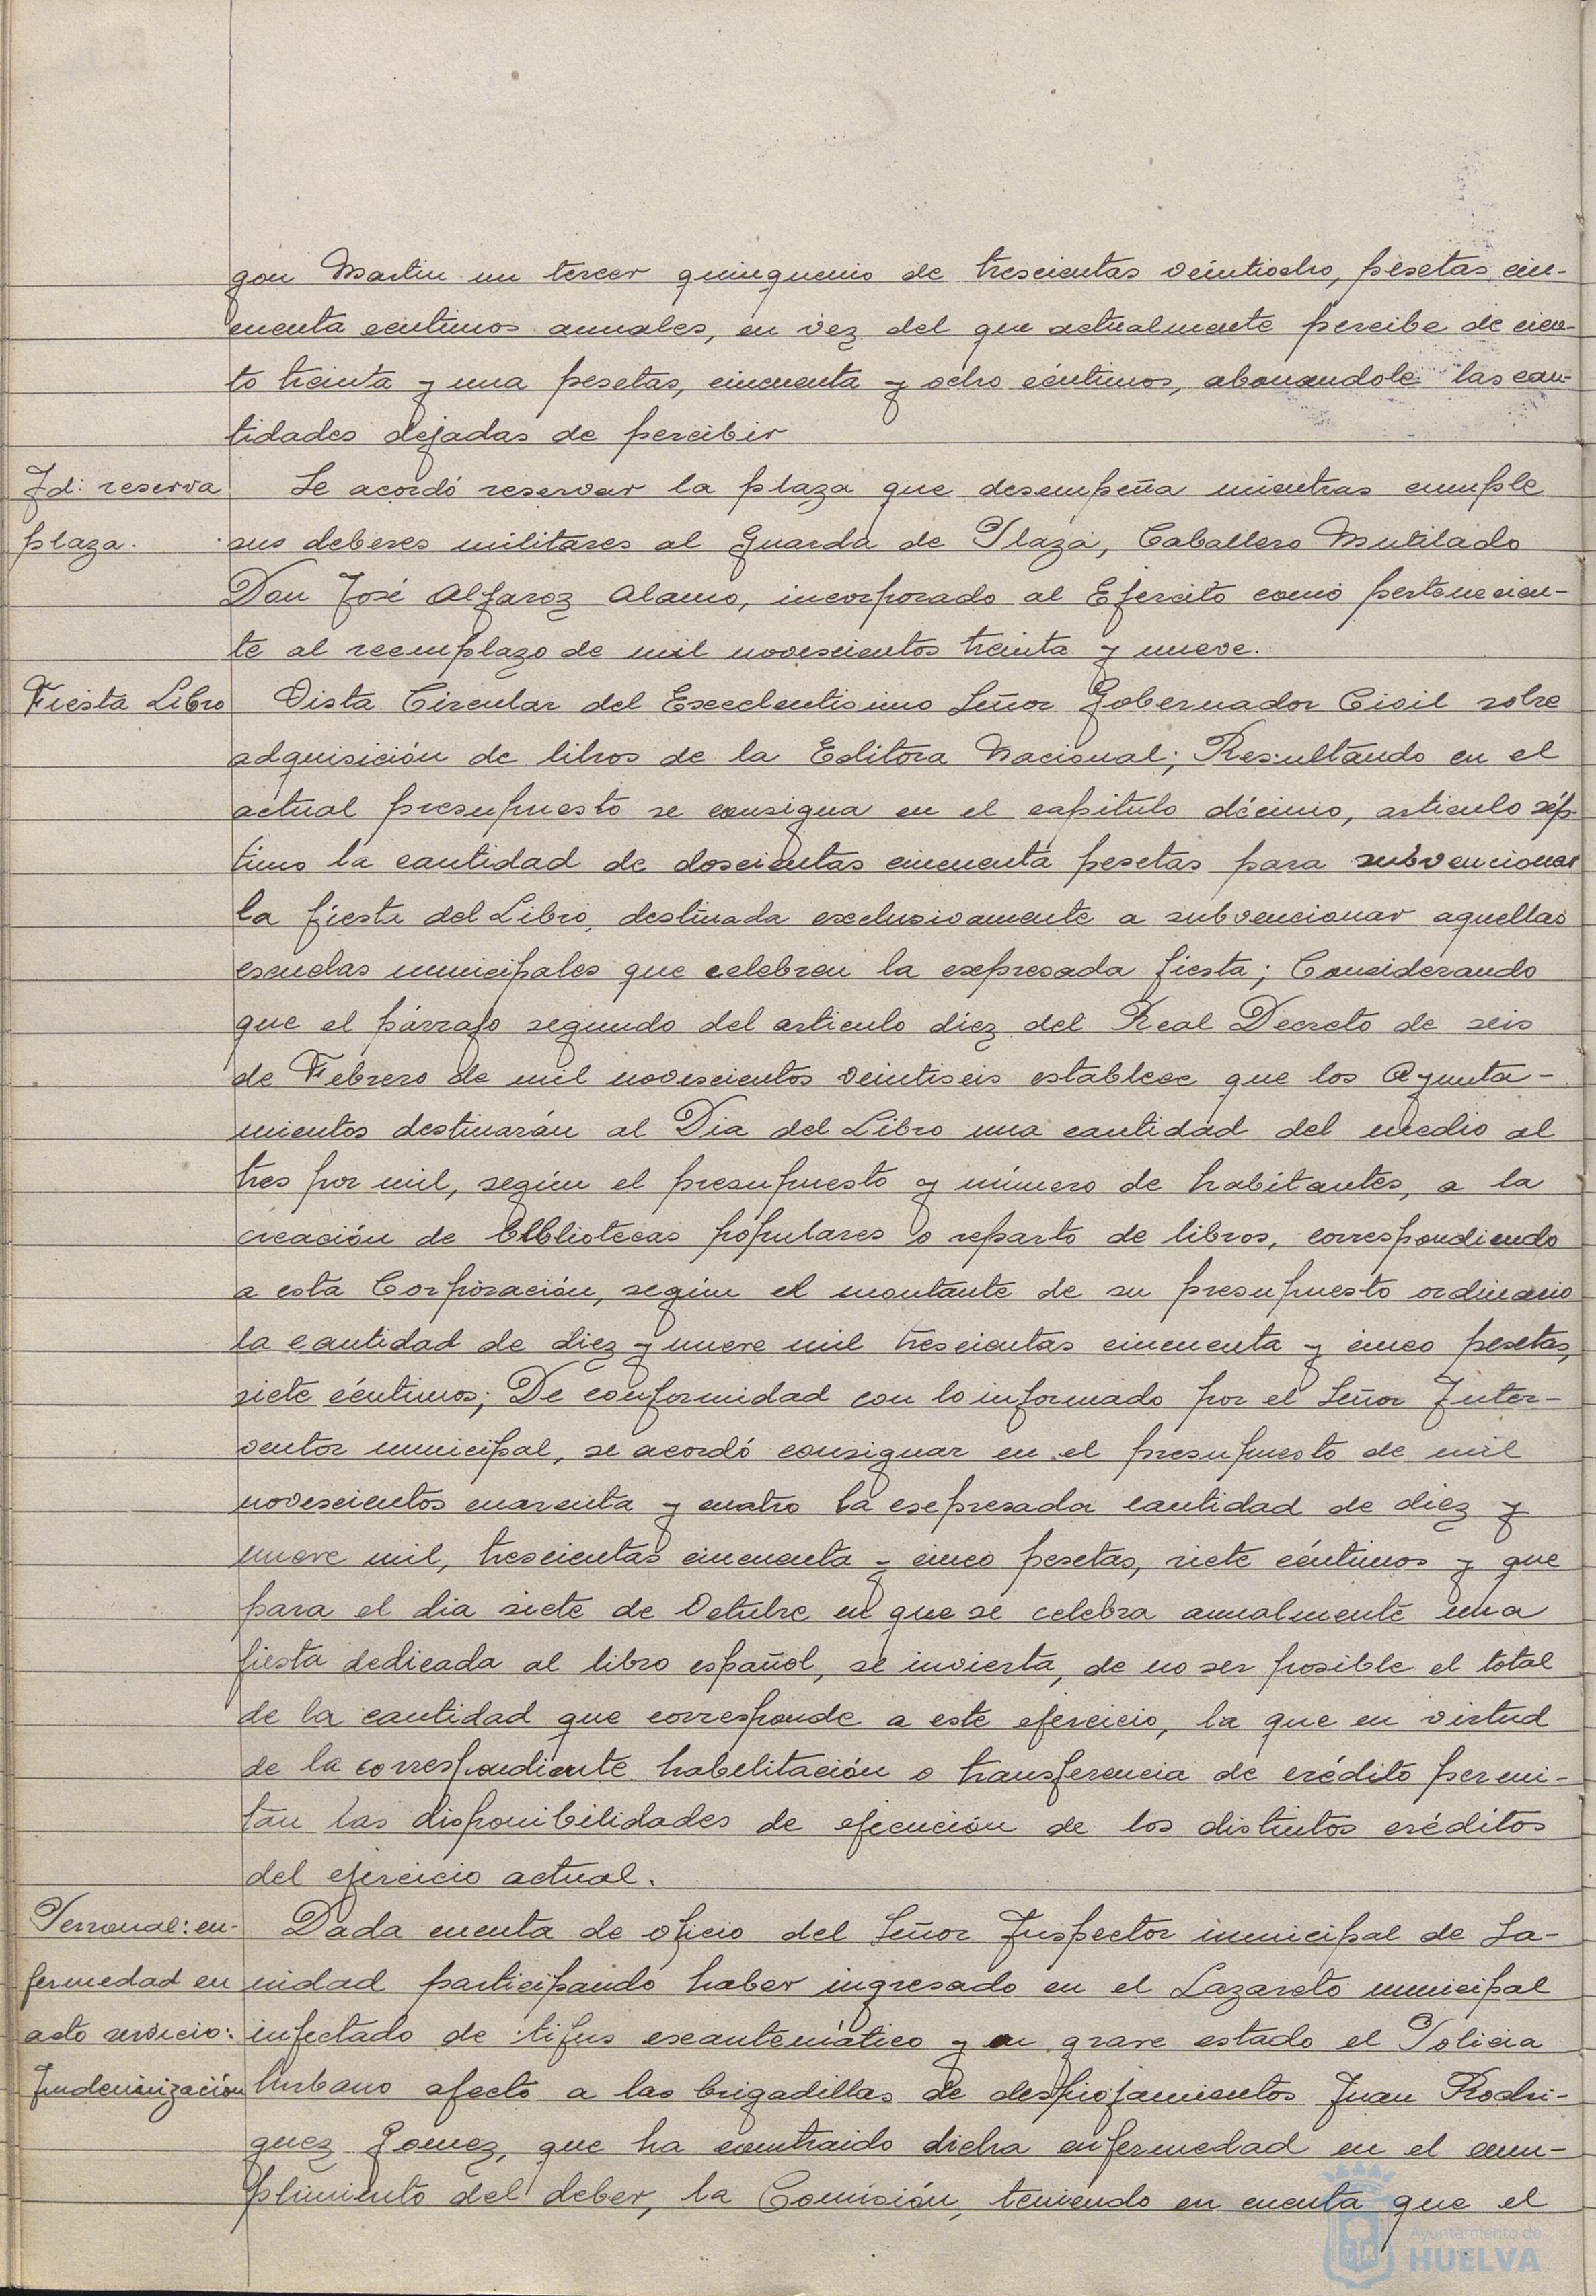 gon Martin un tercer quinquenio de trescientas veintiocho, pesetas cin-
cuenta centimos anuales, en vez del que actualmente percibe de cien-
to treinta y una pesetas, cincuenta y ocho céntimos, abonandole las can-
tidades dejadas de percibir
Id: reserva
plaza.
Se acordó reservar la plaza que desempeña mientras cumple
sus deberes militares al Guarda de Plaza, Caballero Mutilado
Don José Alfaroz Alamo, incorporado al Ejercito como pertenecien-
te al reemplazo de mil novescientos treinta y nueve.
Fiesta Libro
Vista Circular del Excelentisimo Señor Gobernador Civil sobre
adquisición de libros de la Editora Nacional; Resultando en el
actual presupuesto se consigna en el capitulo décimo, articulo sép-
timo la cantidad de doscientas cincuenta pesetas para subvencionar
la fiesta del Libro, destinada exclusivamente a subvencionar aquellas
escuelas municipales que celebren la expresada fiesta; Considerando
que el párrafo segundo del articulo diez del Real Decreto de seis
de Febrero de mil novescientos veintiseis establece que los Ayunta-
mientos destinarán al Dia del Libro una cantidad del medio al
tres por mil, según el presupuesto y número de habitantes, a la
creación de bibliotecas populares o reparto de libros, correspondiendo
a esta Corporación, según el montante de su presupuesto ordinario
la cantidad de diez y nueve mil trescientas cincuenta y cinco pesetas,
siete céntimos; De conformidad con lo informado por el Señor Inter-
ventor municipal, se acordó consignar en el presupuesto de mil
novescientos cuarenta y cuatro la expresada cantidad de diez y
nueve mil, trescientas cincuenta y cinco pesetas, siete céntimos y que
para el dia siete de Octubre en que se celebra anualmente una
fiesta dedicada al libro español, se invierta, de no ser posible el total
de la cantidad que corresponde a este ejercicio, la que en virtud
de la correspondiente habilitación o transferencia de crédito permi-
tan las disponibilidades de ejecución de los distintos créditos
del ejercicio actual.
Personal: en-
fermedad en
acto servicio:
Indemnización
Dada cuenta de oficio del Señor Inspector municipal de Sa-
nidad participando haber ingresado en el Lazareto municipal
infectado de tifus exantemático y en grave estado el Policia
Urbano afecto a las brigadillas de despiojamientos Juan Rodri-
guez Gomez, que ha contraido dicha enfermedad en el cum-
plimiento del deber, la Comisión, teniendo en cuenta que el
Ayuntamiento de
HUELVA